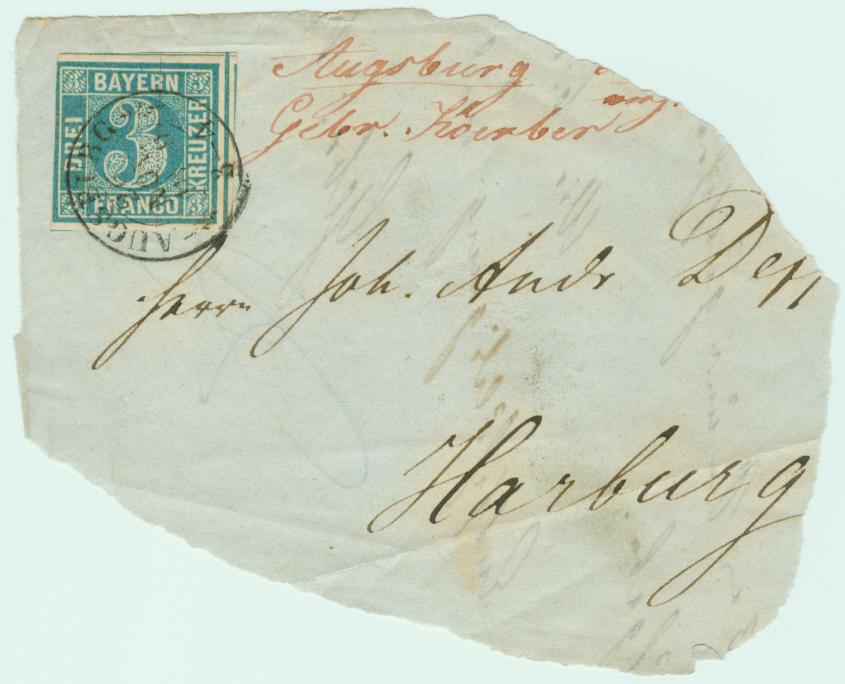 BAYERN
DREI
3
KREUZER
FRANCO
AUGSBURG
Augsburg
Gebr. Koerber
Herrn Joh. Andr
Harburg